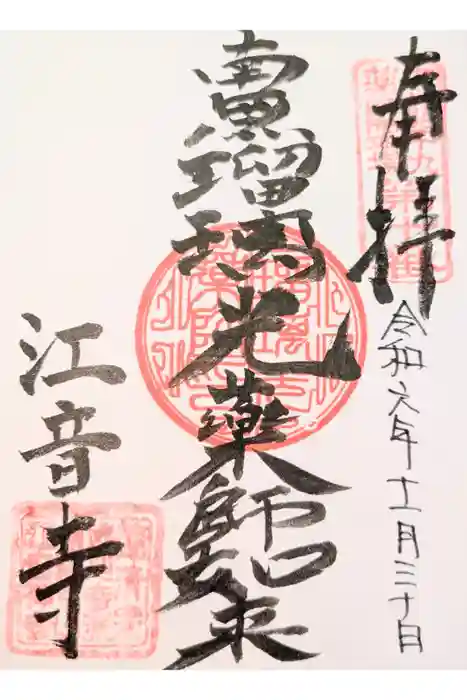 奉拝
令和六年十一月三十日
南無瑠璃光藥師如来
江音寺